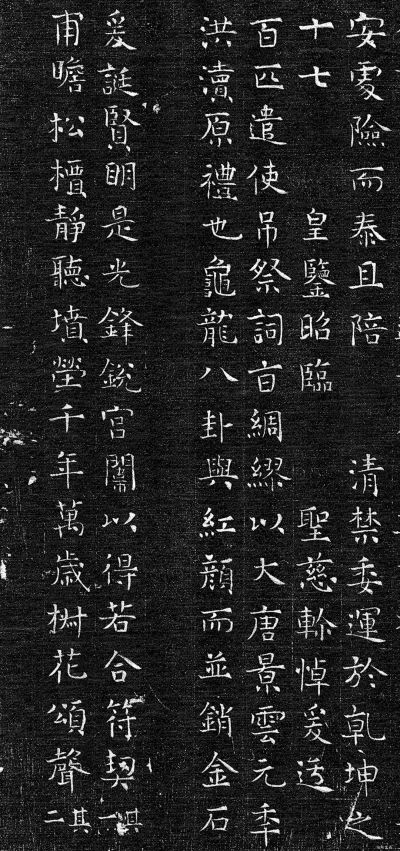 安處險而泰且陪 清禁委運於乾坤之
十七 皇鑒昭臨 聖慈軫悼爰造
百匹遣使吊祭詞旨綢繆以大唐景雲元年
洪瀆原禮也龜龍八卦與紅顏而並銷金石
爰誕賢明是光鋒銳宮闈以得若合符契其一
甫瞻松檟靜聽墳塋千年萬歲椒花頌聲其二